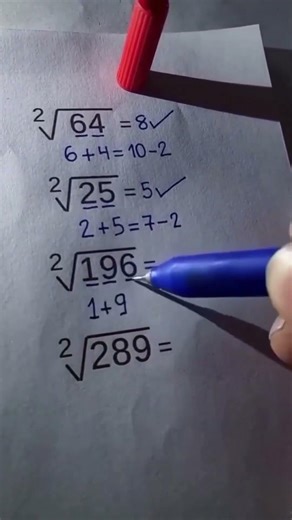 ²√64 = 8✓
6+4=10-2
²√25 = 5✓
2+5=7-2
²√196 =
1+9
²√289 =